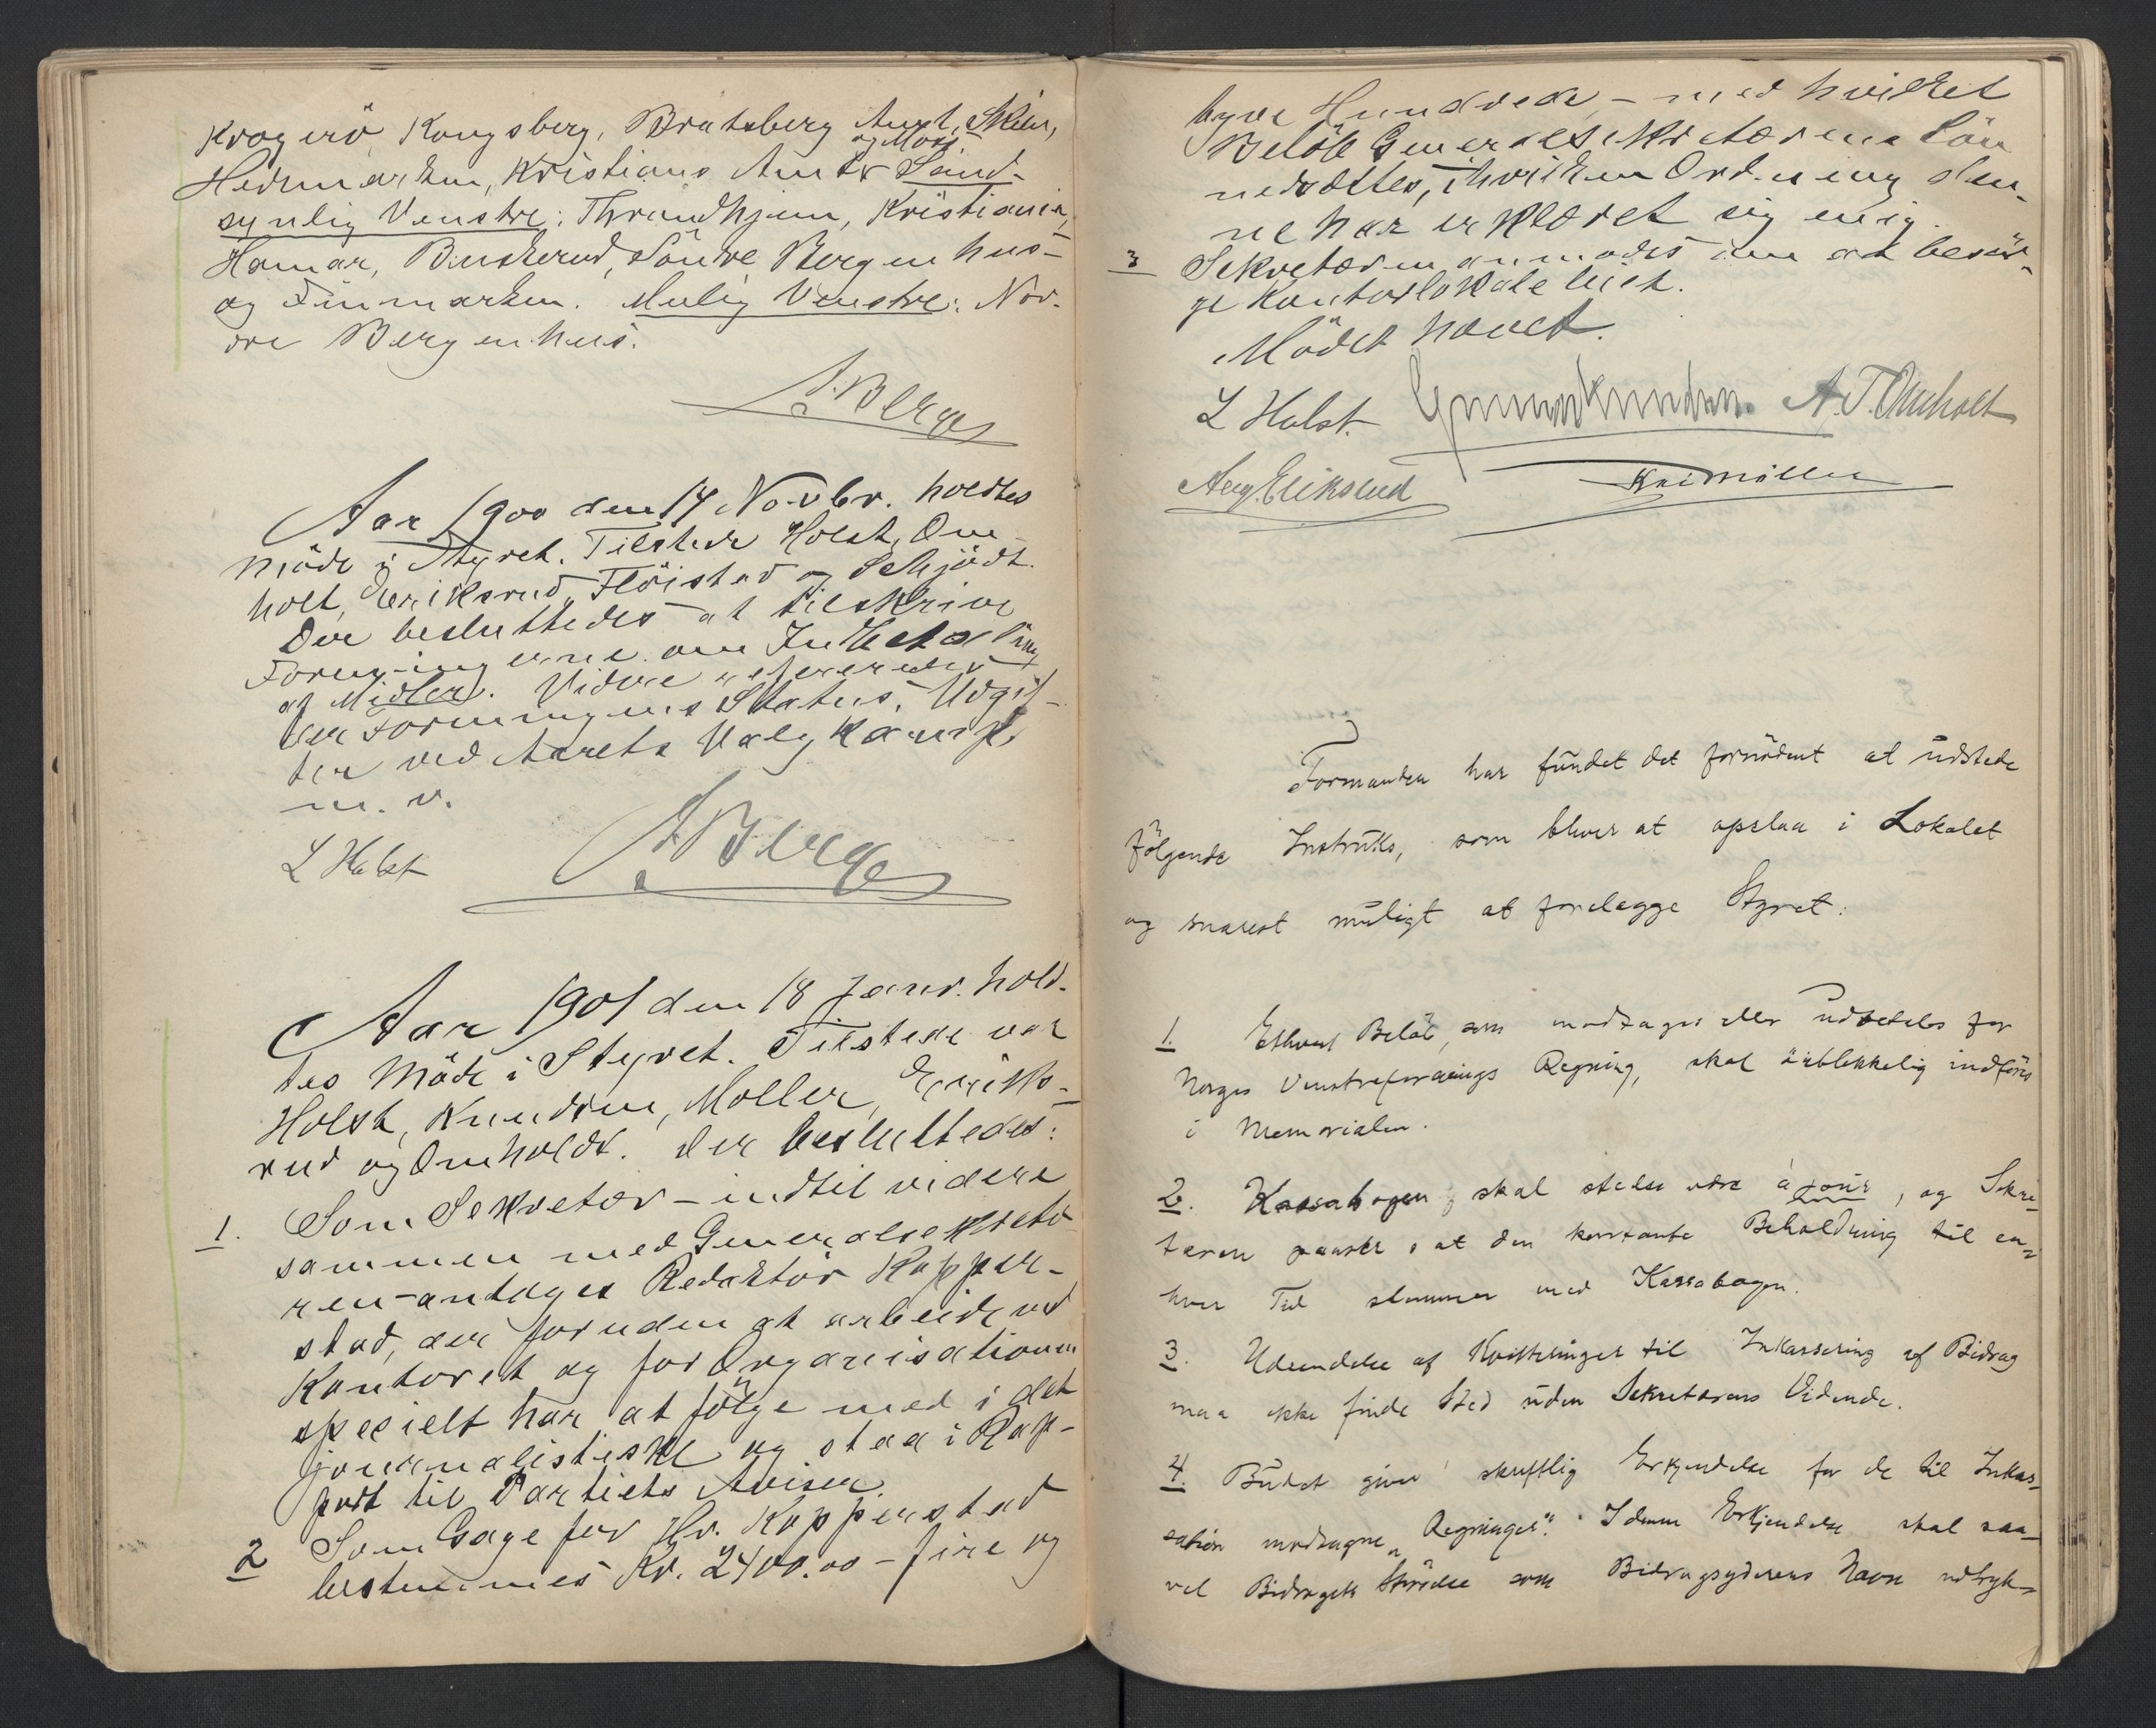 Kragerö, Kongsberg, Bratsberg Amt, Skien,
og Moss.
Hedemarken, Kristians Amt. Sand-
synlig Venstre: Throndhjem, Kristiania,
Hamar, Buskerud, Söndre Bergenhus-
og Finmarken. Mulig Venstre: Nor-
dre Bergenhus.
A. Berge
Aar 1900 den 14 Novbr. holdtes
Möde i Styret. Tilstede Holst, Om-
holt, Eriksrud, Flöistad og Schjödt.
Der besluttedes at tilskrive
Foreningerne om Indbetaling
af Midler. Videre refereredes
der Foreningens Status, Udgif-
ter ved Aarets Valgkamp
m. v.
L Holst A Berge
Aar 1901 den 18 Janr. hold-
tes Möde i Styret. Tilstede var
Holst, Knudsen, Møller, Eriks-
rud og Omholdt. Der besluttedes:
1. Som Sekretær – indtil videre
sammen med Generalsekretæ-
ren – antages Redaktør Kopper-
stad, der foruden at arbeide ved
Kontoret og for Organisationen
specielt har at følge med i det
journalistiske og staa i Rap-
port til Partiets Aviser.
2 Som Gage for Hr. Kopperstad
bestemmes Kr. 2400.00 – fire og
tyve Hundrede – med hvilket
Beløb Generalsekretærens Løn
nedsættes, i hvilken Ordning den-
ne har erklæret sig enig.
3 Sekretæren anmodes om at besör-
ge Kontorlokale leiet.
Mödet hævet.
L Holst. Gunnar Knudsen. A. T. Omholt
Aug. Eriksrud Kai Møller
Formanden har fundet det fornödent at udstede
fölgende Instruks, som bliver at opslaa i Lokalet
og snarest muligt at forelægge Styret:
1. Ethvert Belöb, som modtages eller udbetales for
Norges Venstreforenings Regning, skal öieblikkelig indföres
i Memorialen.
2. Kassabogen skal stedse være à jour, og Sekre-
tæren paaser, at den kontante Beholdning til en-
hver Tid stemmer med Kassabogen.
3. Udsendelse af Kvitteringer til Inkassering af Bidrag
maa ikke finde Sted uden Sekretærens Vidende.
4. Budet giver skriftlig Erkjendelse for de til Inkas-
sation modtagne „Regninger“. I denne Erkjendelse skal saa-
vel Bidragets Störrelse som Bidragsyderens Navn udtryk-